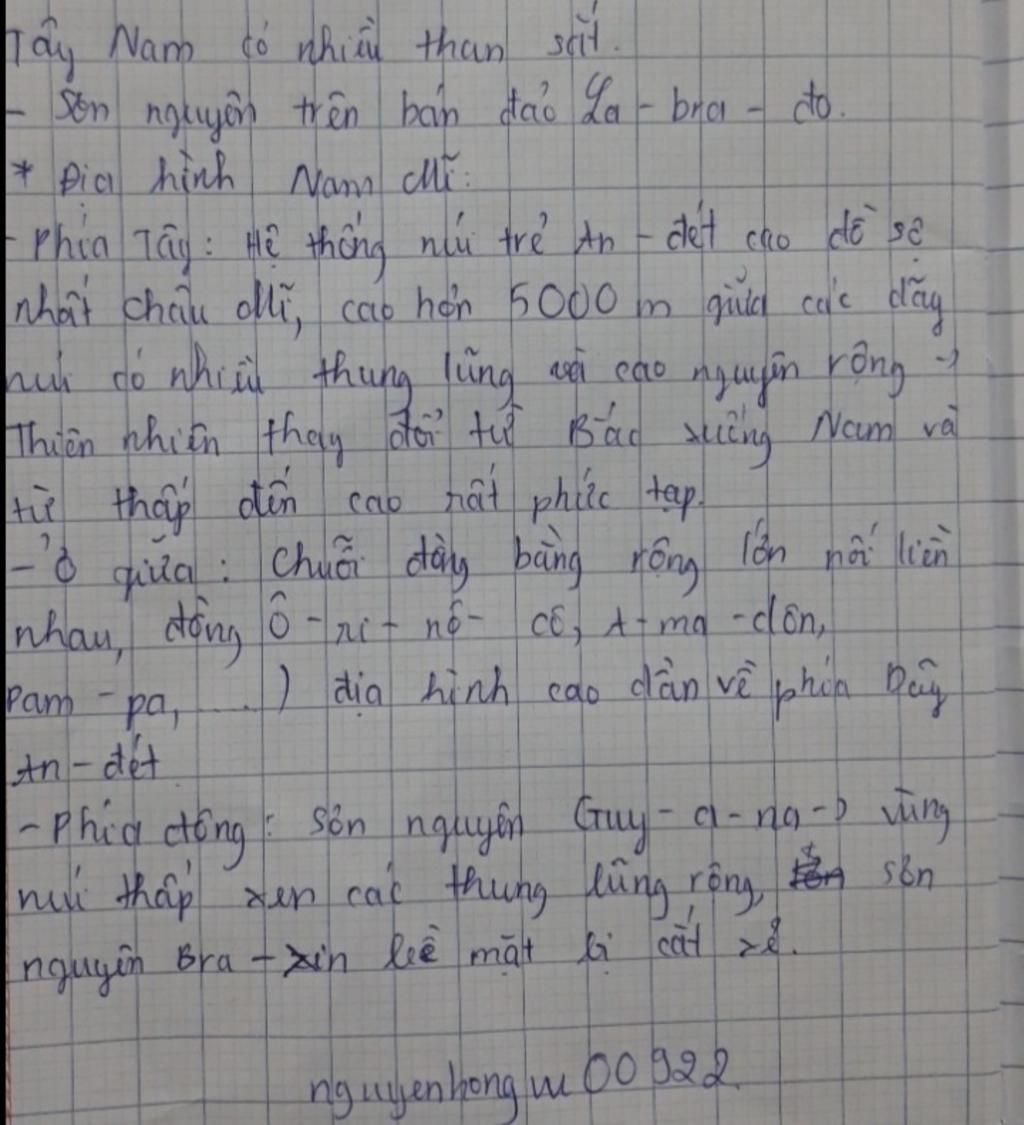 Tây Nam có nhiều than sắt.
- Sơn nguyên trên bán đảo La - bra - đo.
* Địa hình Nam Mĩ:
- Phía Tây: Hệ thống núi trẻ An - đét cao đồ sộ
nhất châu Mĩ, cao hơn 5000 m giữa các dãy
núi có nhiều thung lũng và cao nguyên rộng →
Thiên nhiên thay đổi từ Bắc xuống Nam và
từ thấp đến cao rất phức tạp.
- Ở giữa: Chuỗi đồng bằng rộng lớn nối liền
nhau, đồng Ô - ri - nô - cô, A - ma - dôn,
Pam - pa, ....) địa hình cao dần về phía Dãy
An - đét
- Phía đông: Sơn nguyên Guy - a - na -> vùng
núi thấp xen các thung lũng rộng, sơn
nguyên Bra - xin bề mặt bị cắt xẻ.
nguyenhong 00922